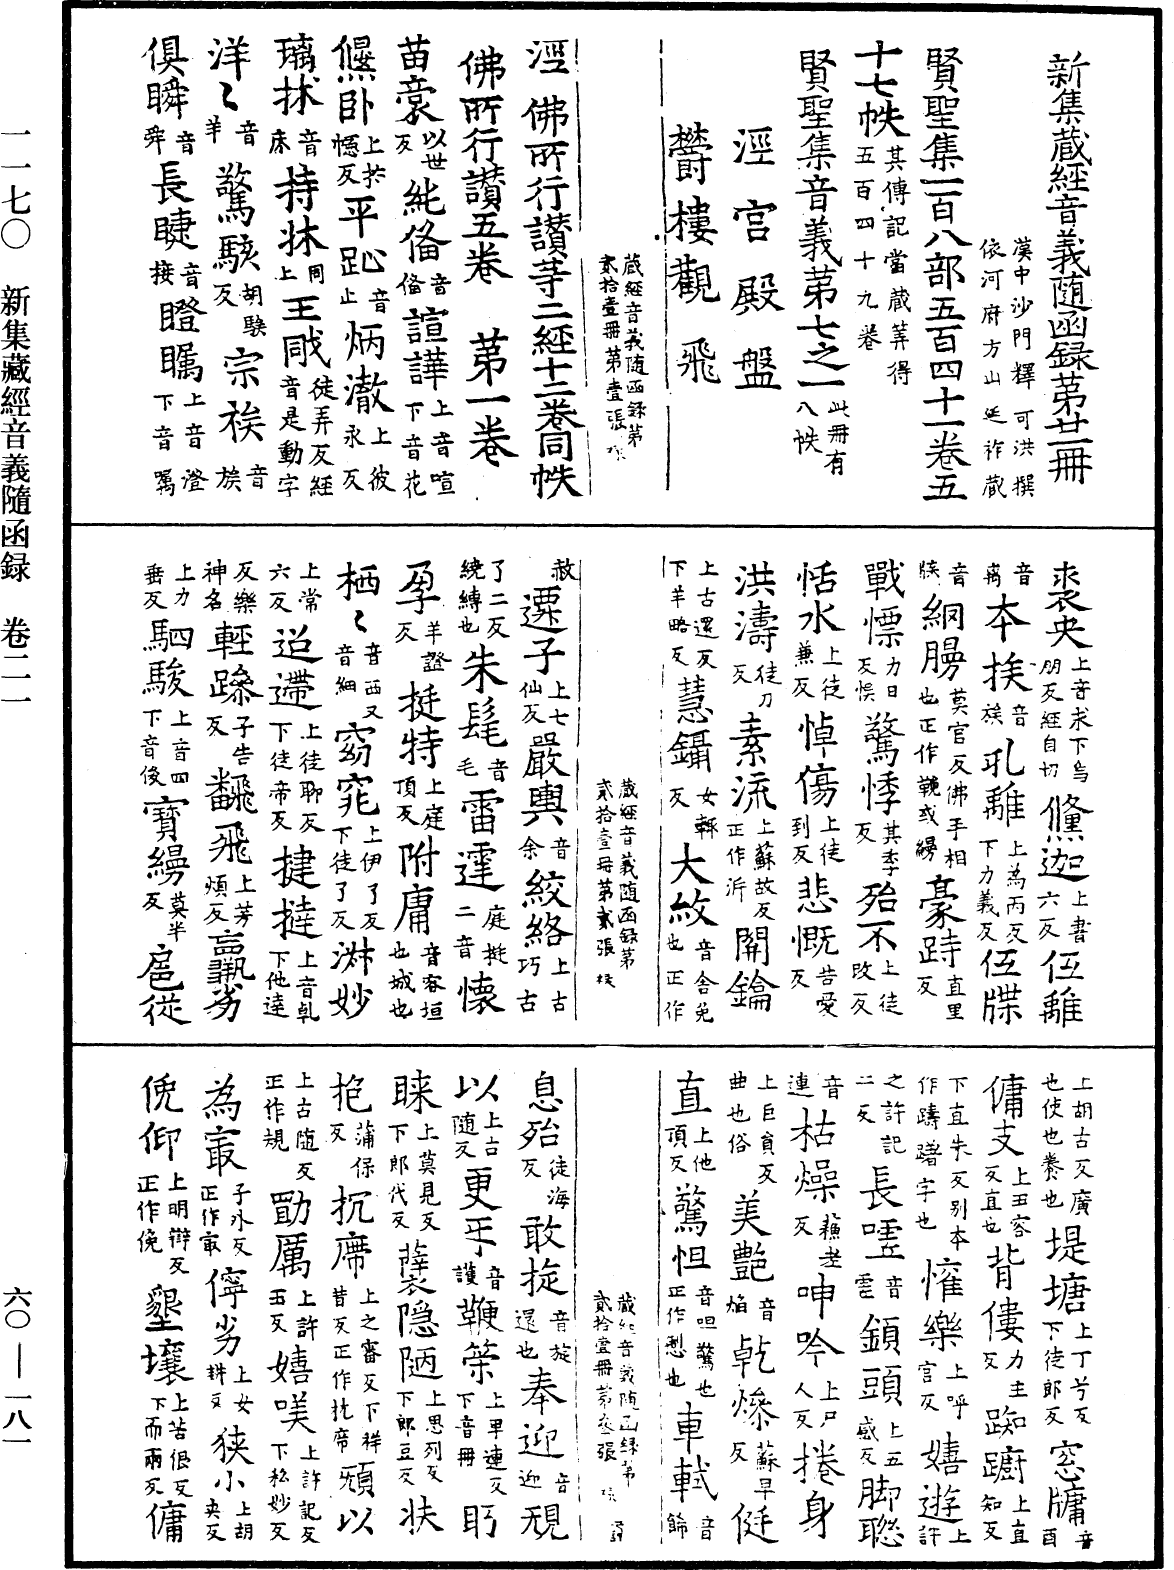 新集藏經音義隨函録第廿一冊
漢中沙門釋 可洪撰
依河府方山延祚藏
賢聖集一百八部五百四十一卷五
十七帙 其傳記當藏筭得五百四十九卷
賢聖集音義第七之一 此冊有八帙
涇 宮 殿 盤
欝 樓 觀 飛
藏經音義随函録第
貳拾壹冊第壹張
涇 佛所行讃等二經十二卷同帙
佛所行讃五卷 第一卷
苗裔 以世反 純俻 音俻 諠譁 上音喧下音花
偃卧 上於憶反 平趾 音止 炳澈 上彼永反
璃牀 音床 持牀 同上 王戙 徒弄反經音是動字
洋〻 音羊 驚駭 胡騃反 宗族 音族
俱瞬 音舜 長睫 音接 瞪矚 上音澄下音囑
裘央 上音求下烏朋反經自切 儵迦 上書六反 伍離
音离 本挨 音族 乳離 上為丙反下力義反 伍牒
音牒 網膓 莫官反佛手相也正作鞔或縵 豪跱 直里反
戰慄 力日反悮 驚悸 其季反 殆不 上徒改反
恬水 上徒兼反 悼傷 上徒到反 悲慨 苦愛反
洪濤 徒刀反 素流 上蘇故反正作泝 開鑰
上古還反下羊略反 慧鑷 女輒反 大赦 音舍免也正作
藏經音義随函録第
貳拾壹冊第貳張
赦 遷子 上七仙反 嚴輿 音余 絞絡 上古巧
了二反繞縛也 朱髦 音毛 雷霆 庭挺二音 懐
孕 羊證反 挺特 上庭頂反 附庸 音容垣也城也
栖〻 音西又音細 窈窕 上伊了反下徒了反 淋妙
上常六反 迢遰 上徒聊反下徒帝反 揵撻 上音乹下他達
反樂神名 輕躁 子告反 翻飛 上芳煩反 羸劣
上力垂反 駟駿 上音四下音俊 寶縵 莫半反 扈從
上胡古反廣也使也養也 堤塘 上丁兮反下徒郎反 窓牖 音酉
傭支 上丑容反直也 背僂 力主反 踟躕 上直知反
下直朱反别本作躊躇字也 懽樂 上呼官反 嬉遊 上許
之許記二反 長噓 音雲 頷頭 上五感反 脚聮
音連 枯燥 蘓老反 呻吟 上尸人反 捲身
上巨負反曲也俗 美艷 音焰 乾燥 蘇早反 侹
直 上他頂反 驚怛 音呾驚也正作懟也 車軾 音飾
藏經音義随函録第
貳拾壹冊第叁張
息殆 徒海反 敢掟 音旋還也 奉迎 音迎 規
以 上古随反 更𢖍 音護 鞭策 上畢連反下音冊 眄
睞 上莫見反下郎代反 薛隠陋 上思列反下郎豆反 扶
抱 蒲保反 抌席 上之審反下祥昔反正作枕席 頍以
上古随反正作規 勖厲 上許玉反 嬉𠸄 上許記反下私妙反
為㝡 子外反正作最 儜劣 上女耕反 狭小 上胡夾反
俛仰 上明辯反正作俛 墾壤 上苦佷反下而兩反 傭
一一七〇 新集藏經音義隨函録 卷二一
六〇——一八一